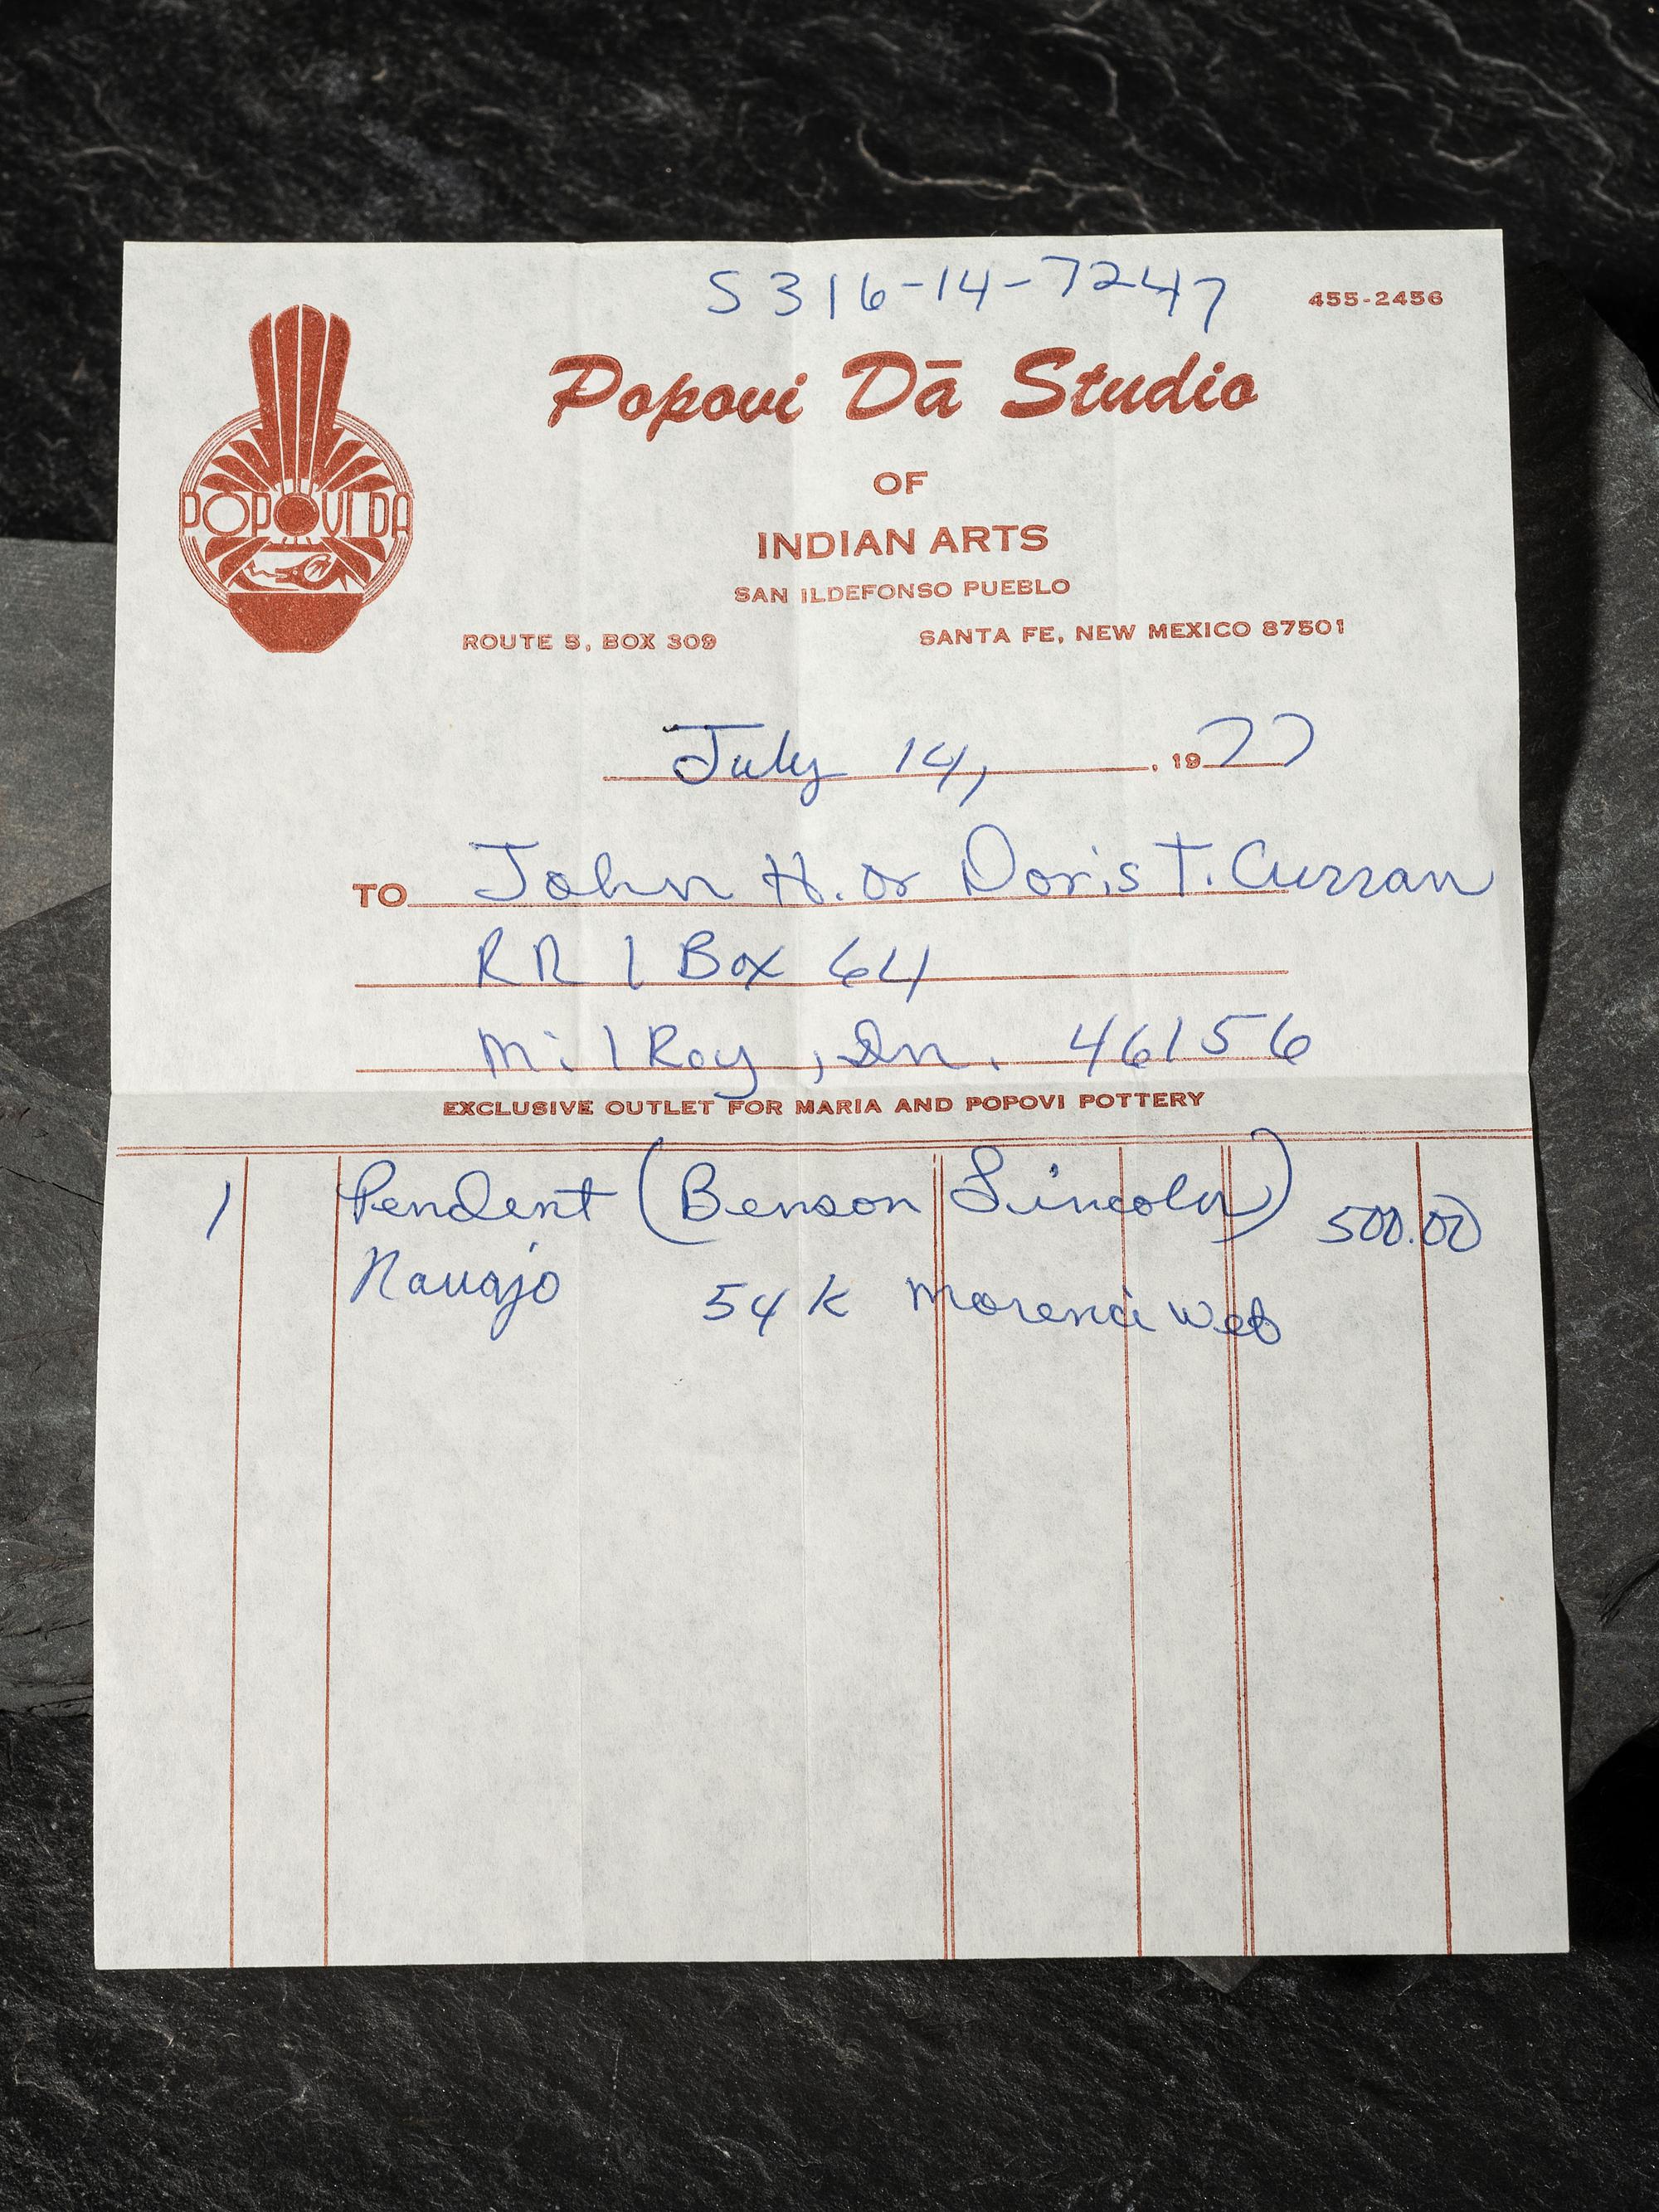 S 316-14-7247
455-2456
POPOVI DA
Popovi Dā Studio
OF
INDIAN ARTS
SAN ILDEFONSO PUEBLO
ROUTE 5, BOX 309 SANTA FE, NEW MEXICO 87501
July 14, , 1977
TO John H. or Doris T. Curran
RR 1 Box 64
MilRoy, In. 46156
EXCLUSIVE OUTLET FOR MARIA AND POPOVI POTTERY
1 Pendent (Benson Lincoln) 500.00
Navajo 54 K Morenci web